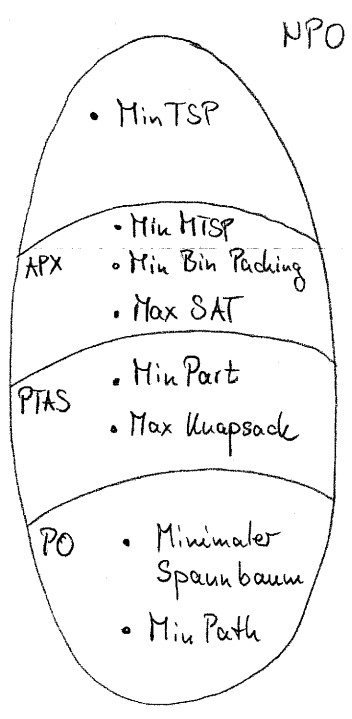 NPO
• Min TSP
• Min MTSP
APX
• Min Bin Packing
• Max SAT
• Min Part
PTAS
• Max Knapsack
PO
• Minimaler
Spannbaum
• Min Path